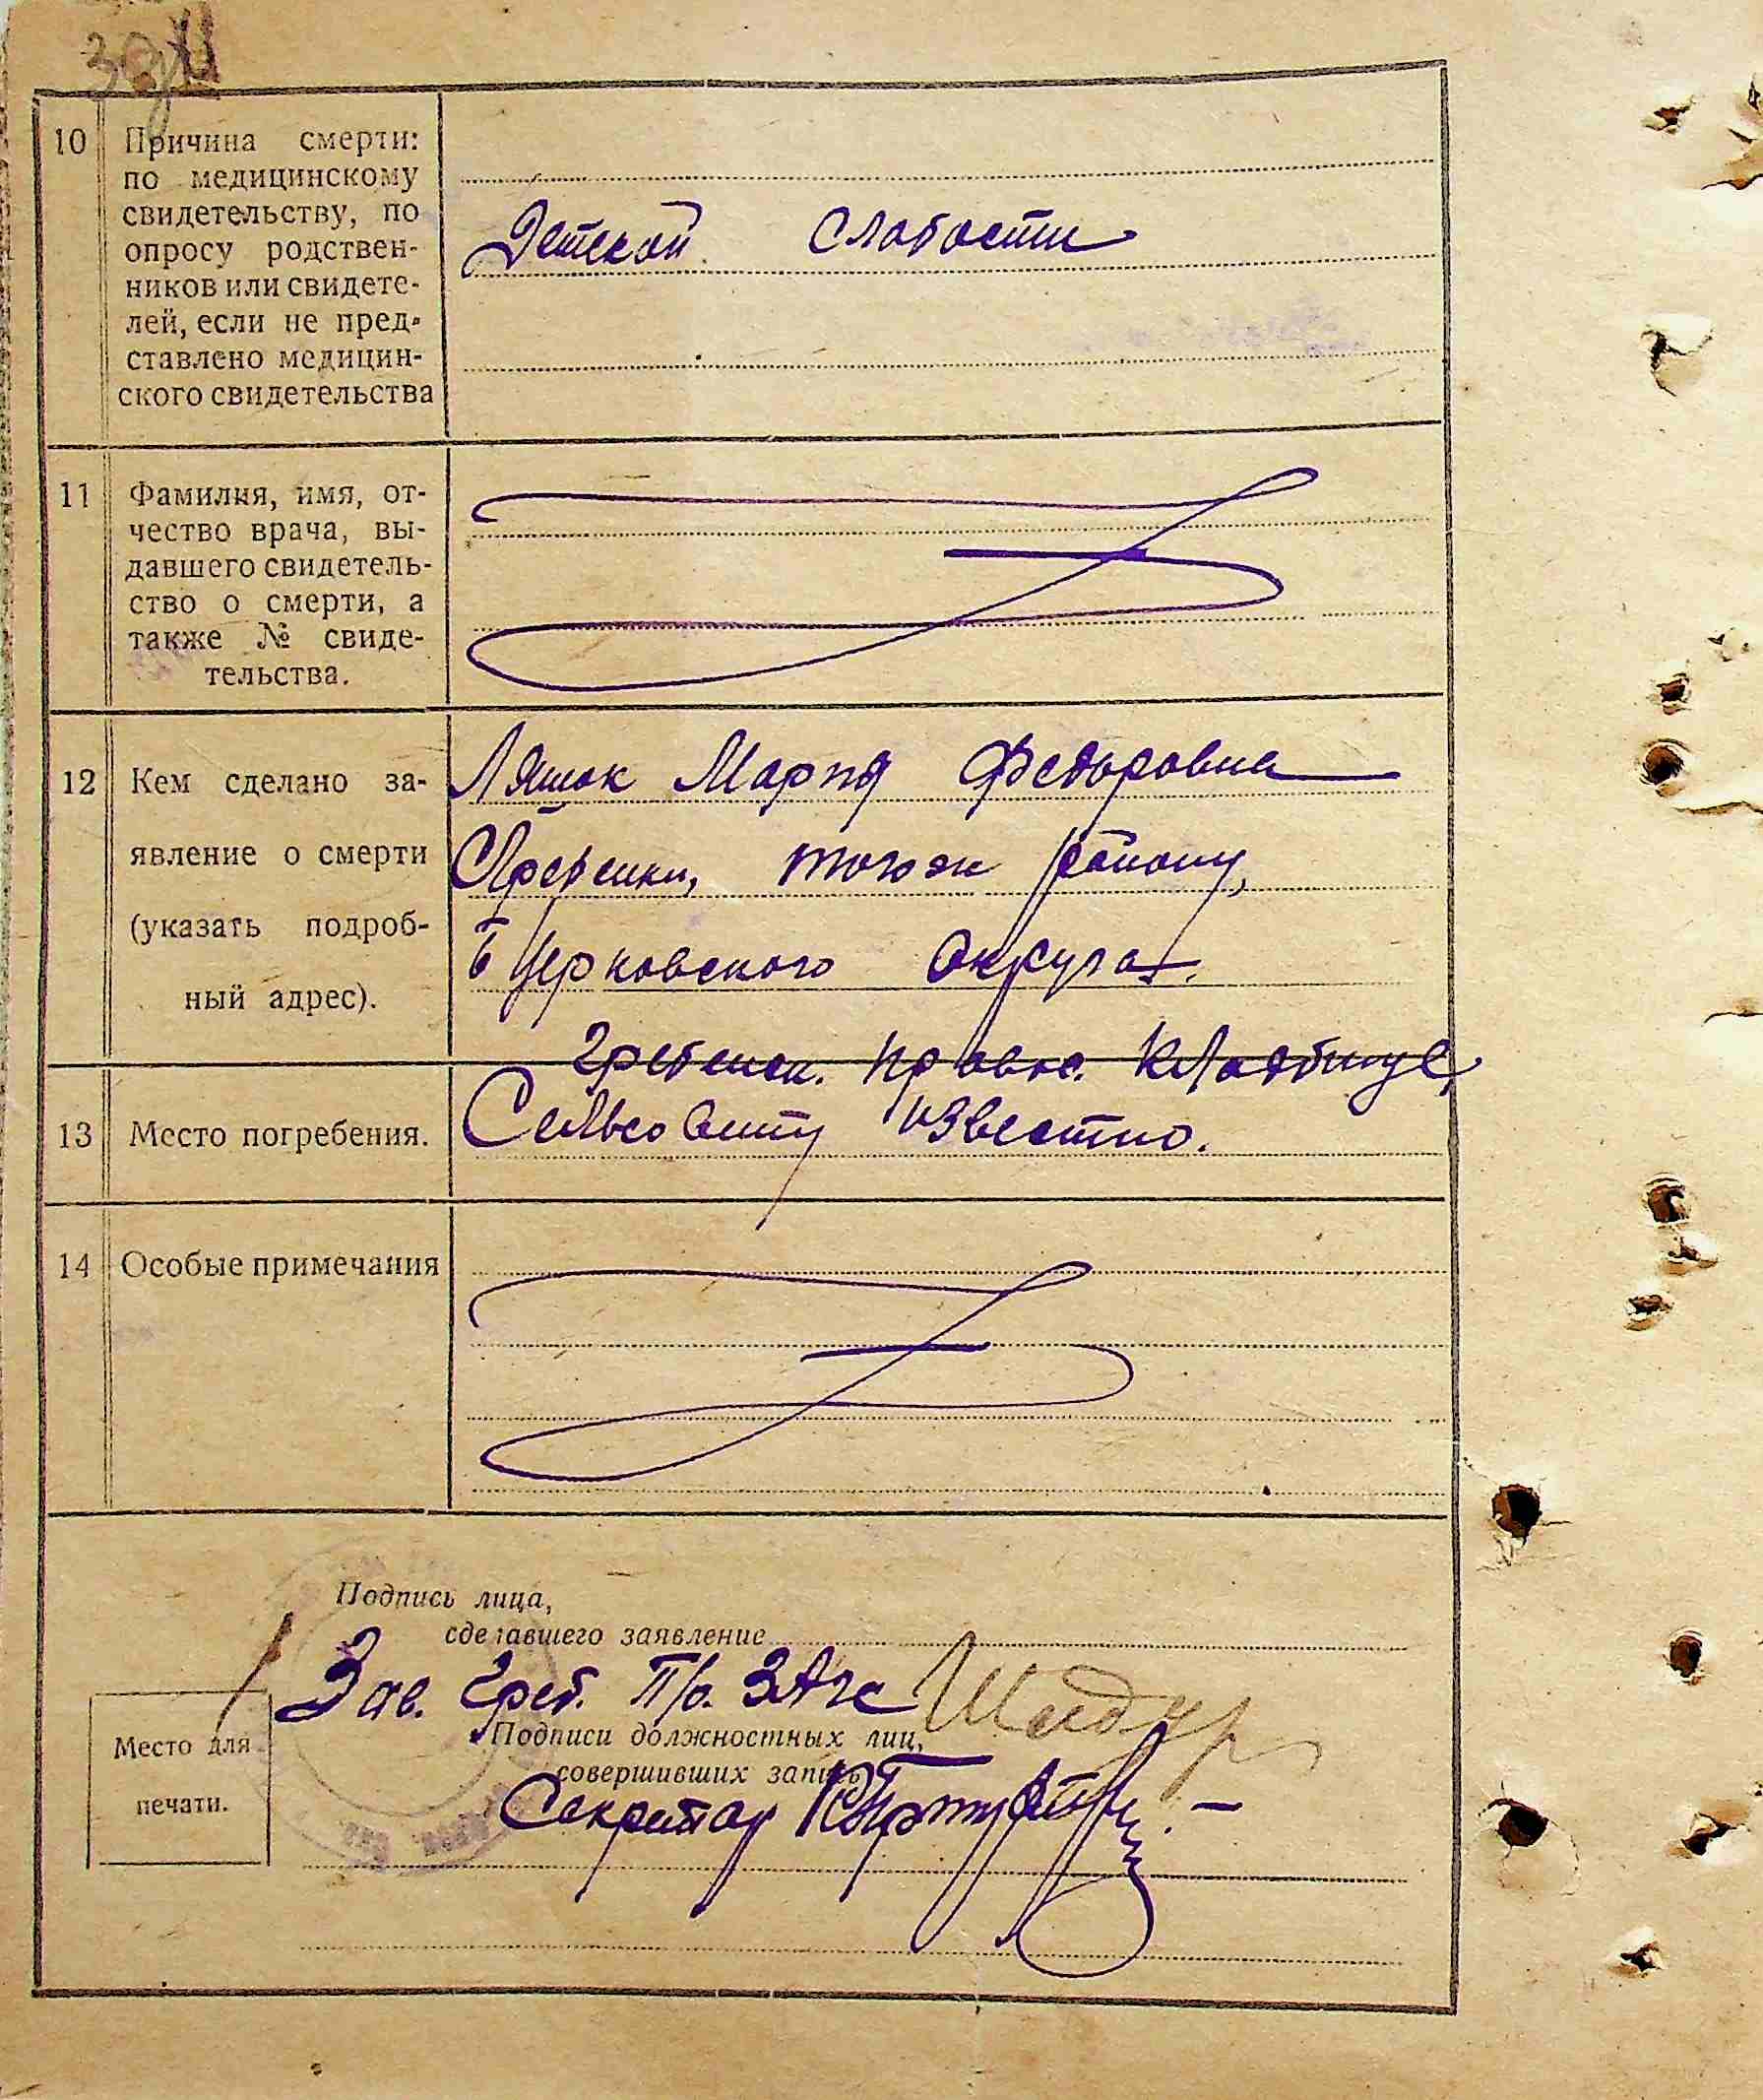 10 Причина смерти:
по медицинскому
свидетельству, по
опросу родствен-
ников или свидете-
лей, если не пред-
ставлено медицин-
ского свидетельства
Детской слабости
11 Фамилия, имя, от-
чество врача, вы-
давшего свидетель-
ство о смерти, а
также № свиде-
тельства.
12 Кем сделано за-
явление о смерти
(указать подроб-
ный адрес).
Ляшок Мария Федоровна
Гребенки, тогож району,
Б Церковского Округа.
13 Место погребения.
Гребенск. правос. кладбище
Сельсовету известно.
14 Особые примечания
Подпись лица,
сделавшего заявление
Зав. Греб. П/о. ЗАГС
Подписи должностных лиц,
совершивших запись
Секретар
Место для
печати.